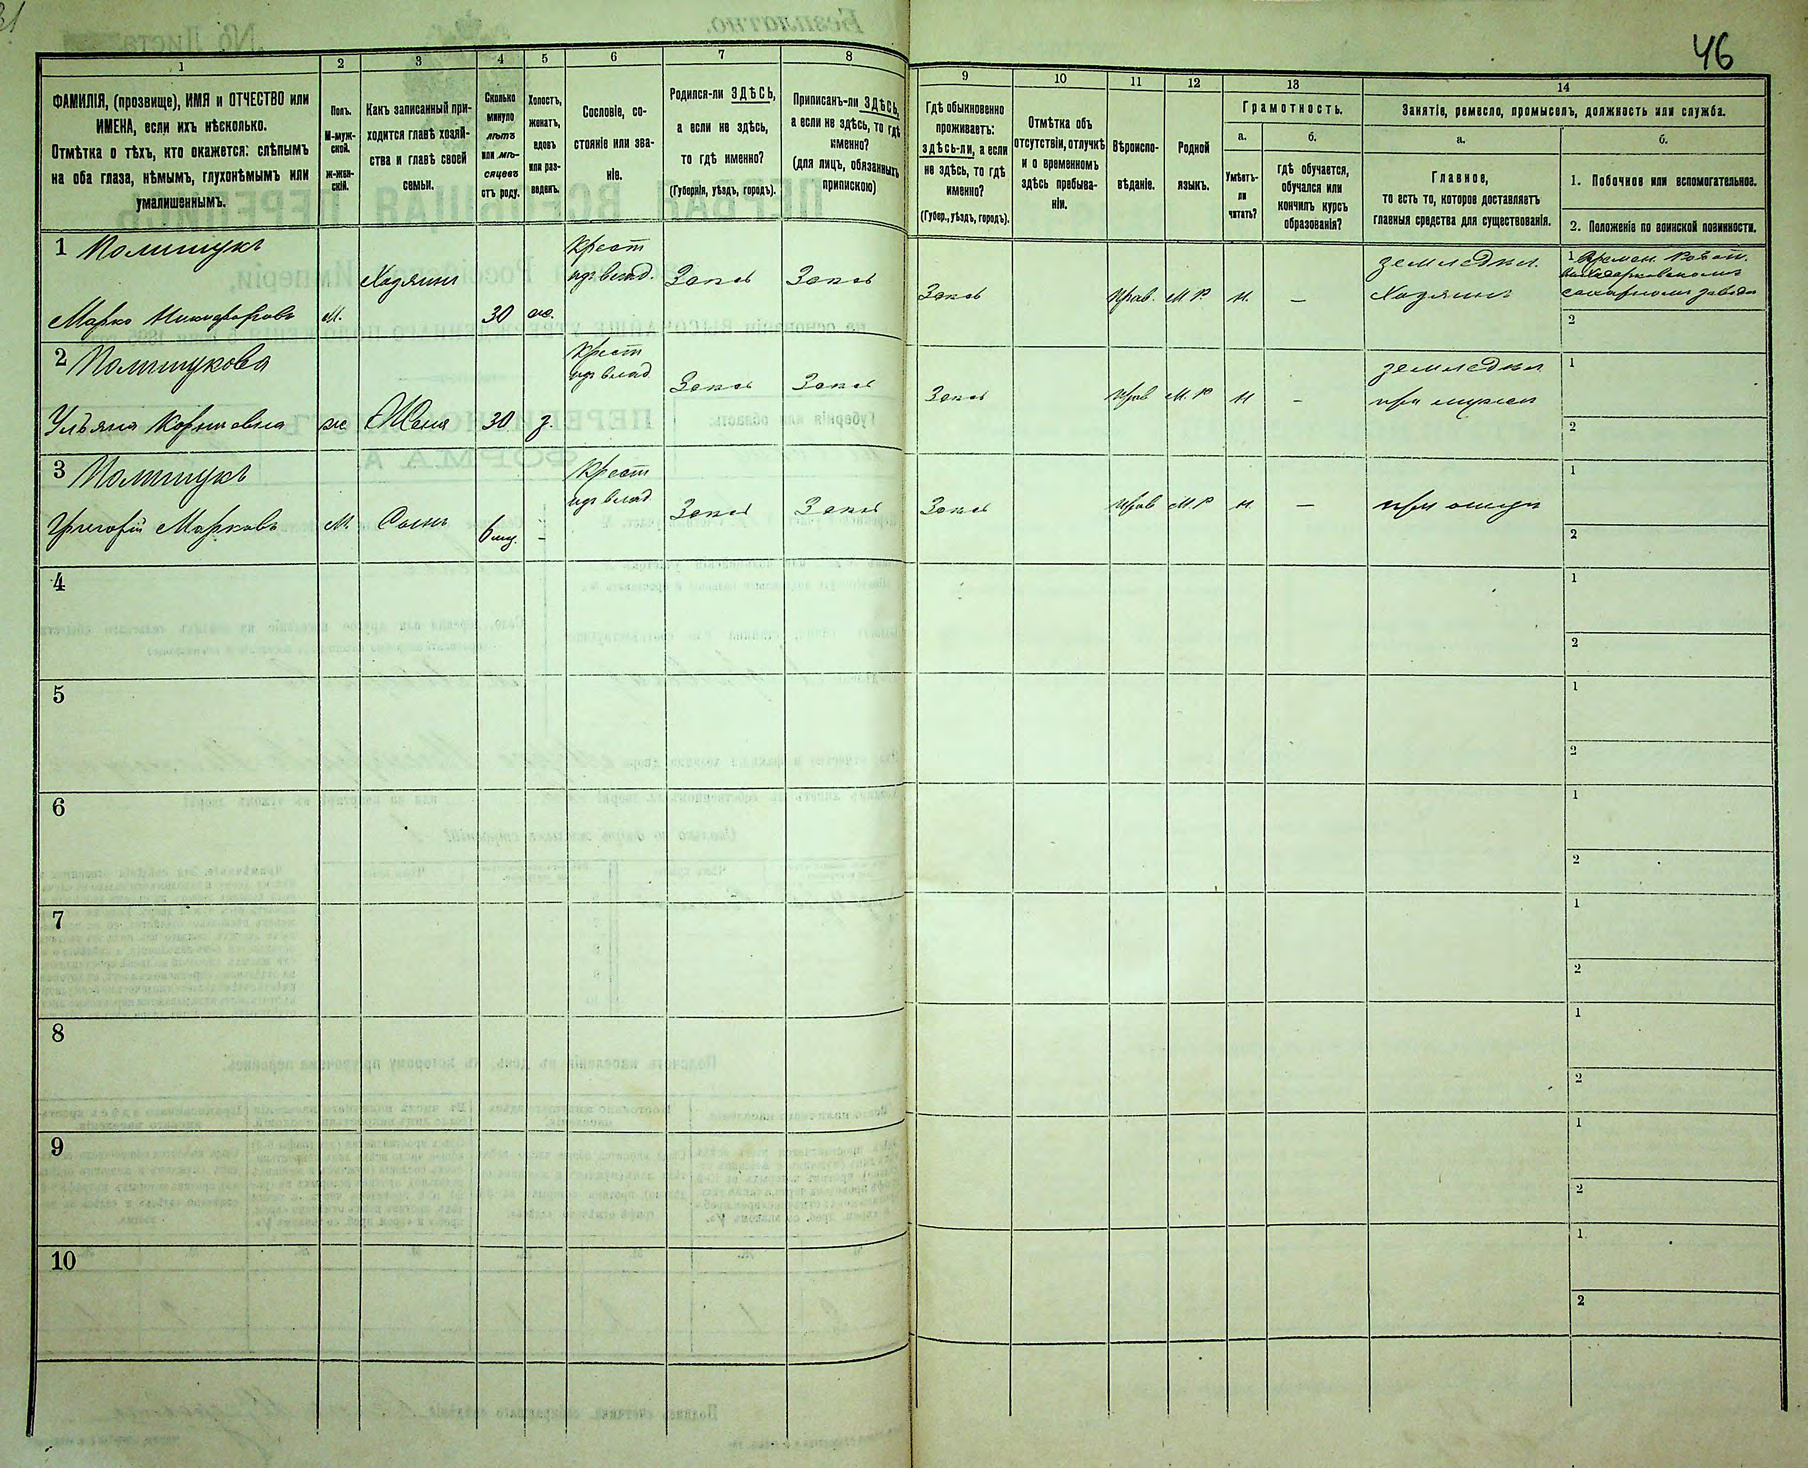 46
1 2 3 4 5 6 7 8 9 10 11 12 13 14
ФАМИЛІЯ, (прозвище), ИМЯ и ОТЧЕСТВО или
ИМЕНА, если ихъ нѣсколько.
Отмѣтка о тѣхъ, кто окажется: слѣпымъ
на оба глаза, нѣмымъ, глухонѣмымъ или
умалишеннымъ.
Полъ.
М-муж-
ской.
Ж-жен-
скій.
Какъ записанный при-
ходится главѣ хозяй-
ства и главѣ своей
семьи.
Сколько
минуло
лѣтъ
или мѣ-
сяцевъ
отъ роду.
Холостъ,
женатъ,
вдовъ
или раз-
веденъ.
Сословіе, со-
стояніе или зва-
ніе.
Родился-ли ЗДѢСЬ,
а если не здѣсь,
то гдѣ именно?
(Губернія, уѣздъ, городъ).
Приписанъ-ли ЗДѢСЬ,
а если не здѣсь, то гдѣ
именно?
(для лицъ, обязанныхъ
припискою)
Гдѣ обыкновенно
проживаетъ:
здѣсь-ли, а если
не здѣсь, то гдѣ
именно?
(Губер., уѣздъ, городъ).
Отмѣтка объ
отсутствіи, отлучкѣ
и о временномъ
здѣсь пребыва-
ніи.
Вѣроиспо-
вѣданіе.
Родной
языкъ.
Грамотность.
а. б.
Умѣетъ-
ли
читать?
гдѣ обучается,
обучался или
кончилъ курсъ
образованія?
Занятія, ремесло, промыселъ, должность или служба.
а. б.
Главное,
то есть то, которое доставляетъ
главныя средства для существованія.
1. Побочное или вспомогательное.
2. Положеніе по воинской повинности.
1 Полищукъ
Марко Никифоровъ
м.
Хозяинъ
30
ж.
Крест
изъ влад.
Здесь
Здесь
Здесь
Прав.
М Р
н.
—
земледел.
Хозяинъ
1 Времен. Работ.
сахарномъ заводе
2
2 Полищукова
Ульяна Корнієвна
ж
Жена
30
з.
Крест
изъ влад
Здесь
Здесь
Здесь
Прав
М. Р
н
-
земледел
при муже
1
2
3 Полищукъ
Григорій Марковъ
м.
Сынъ
6 мц.
-
Крест
изъ влад
Здесь
Здесь
Здесь
Прав
М Р
н.
—
при отце
1
2
4
1
2
5
1
2
6
1
2
7
1
2
8
1
2
9
1
2
10
1.
2